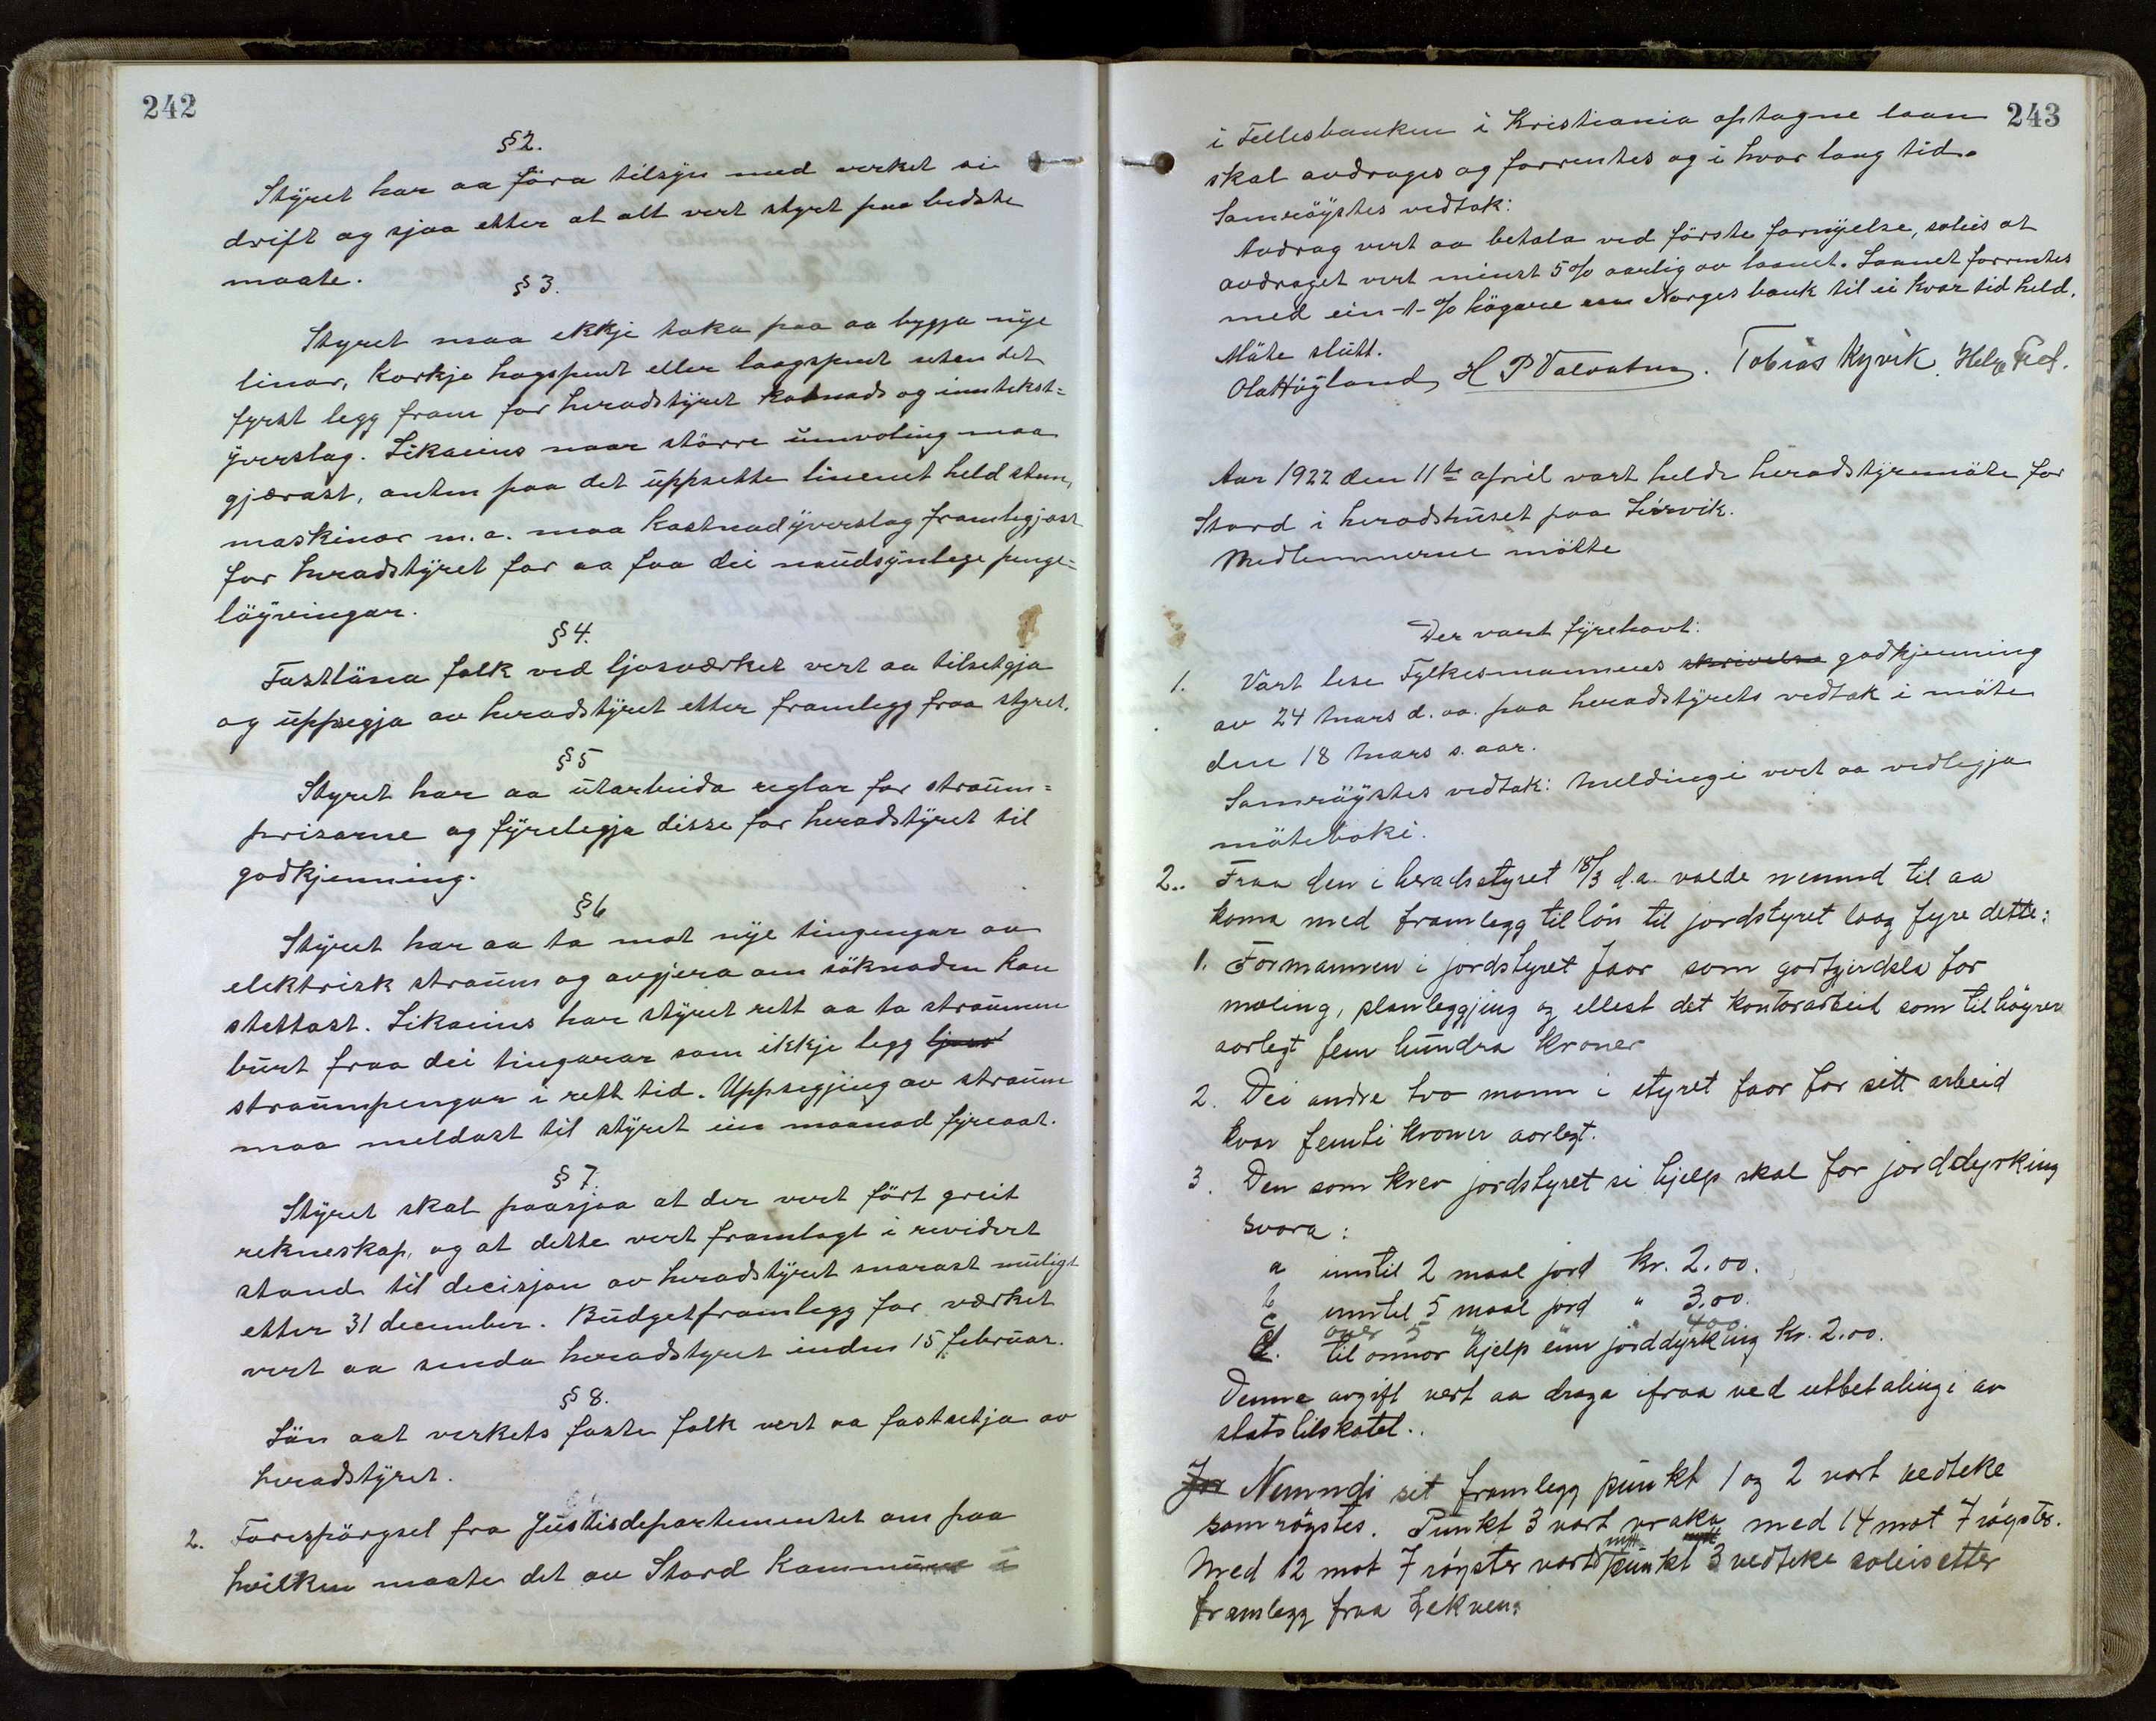 242
§ 2.
Styret har aa föra tilsyn med verket si
drift og sjaa etter at alt vert styrt paa bedste
maate.
§ 3.
Styret maa ekkje taka paa aa byggja nye
linor, korkje hogspent eller laagspent uten det
fyrst legg fram for heradstyret kostnads og inntekst=
yverslag. Likaeins naar större umvoling maa
gjærast, anten paa det uppsette linenet held stem,
maskinor m. a. maa kostnadyverslag framlegjast
for heradstyret for aa faa dei naudsynlege penge=
löyvingar.
§ 4.
Fastläna folk ved ljosverket vert aa tilsetgja
og uppsegja av heradstyret etter framlegg fraa styret.
§ 5
Styret har aa utarbeida reglar for straum=
prisarne og fyrelegja disse for heradstyret til
godkjenning.
§ 6
Styret har aa ta mot nye tingingar av
elektrisk straum og avgjera om söknaden kan
stettast. Likaeins har styret rett aa ta straumen
burt fraa dei tingarar som ikkje legg ljos
straumpengar i rett tid. Uppsegjing av straum
maa meldast til styret ein maanad fyreaat.
§ 7.
Styret skal paasjaa at der vert fört greit
rekneskap, og at dette vert framlagt i revidert
stand til decisjon av heradstyret snarast muligt
etter 31 december. Budgetframlegg for værket
vert aa senda heradstyret inden 15 februar.
§ 8.
Lön aat verkets faste folk vert aa fastsetja av
heradstyret.
2. Forespörgsel fra Justisdepartementet om paa
hvilken maate det av Stord kommune i
243
i Fellesbanken i Kristiania optagne laan
skal avdrages og forrentes og i hvor lang tid.
Samröystes vedtak:
Avdrag vert aa betala ved förste fornyelse, soleis at
avdraget vert minst 5% aarlig av laanet. Laanet forrentes
med ein -1- % högare enn Norges bank til ei kvar tid held.
Möte slutt.
Ola Høyland H P Valvatne. Tobias Kyvik. Helge
Aar 1922 den 11te april vart held heradstyremöte for
Stord i heradshuset paa Leirvik.
Medlemmerne mötte
Der vart fyrehavt:
1. Vart lese Fylkesmannens skrivelse godkjenning
av 24 mars d. aa. paa heradstyrets vedtak i möte
den 18 mars s. aar.
Samröystes vedtak: Meldingi vert aa vedlegja
möteboki.
2.. Fraa den i heradsstyret 18/3 d.a. valde nemnd til aa
koma med framlegg til lön til jordstyret laag fyre dette:
1. Formannen i jordstyret faar som godtgjerdsla for
mæling, planleggjing og ellest det kontorarbeid som tilhøyrer
aarlegt fem hundra kroner
2. Dei andre tvo mann i styret faar for sitt arbeid
kvar femti kroner aarlegt.
3. Den som krev jordstyret si hjelp skal for jorddyrking
svara:
a inntil 2 maal jord kr. 2.00.
b inntil 5 maal jord " 3.00.
c over 5 " " 400
d. til annor hjelp enn jorddyrking kr. 2.00.
Denne avgift vert aa draga ifraa ved utbetalingi av
statstilskotet..
For Nemndi sit framlegg punkt 1 og 2 vart vedteke
samrøystes. Punkt 3 vart vraka med 14 mot 7 røyster.
Med 12 mot 7 røyster vart nytt punkt 3 vedteke soleis etter
framlegg fraa Lekven: